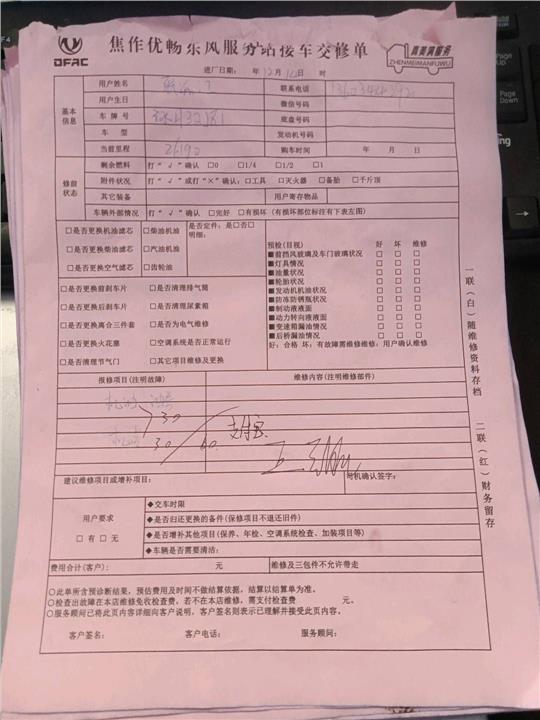 DFAC
焦作优畅东风服务站接车交修单
真美满服务
ZHENMEIMANFUWU
进厂日期： 年 12月 日 时
基本信息
用户姓名 联系电话
用户生日 微信号码
车牌号 底盘号码
车型 发动机号码
当前里程 购车时间 年 月 日
修前状态
剩余燃料 打“√”确认 □0 □1/4 □1/2 □1
附件状况 打“√”或打“×”确认：□工具 □灭火器 □备胎 □千斤顶
其它装备 用户寄存物品
车辆外部情况 打“√”确认 □完好 □有损坏（有损坏部位标注有下表左图）
□是否更换机油滤芯 □柴油机油 是否定件：是□否□
□是否更换柴油滤芯 □汽油机油 明细：
□是否更换空气滤芯 □齿轮油
□是否更换前刹车片 □是否清理排气筒
□是否更换后刹车片 □是否清理尿素箱
□是否更换离合三件套 □是否为电气维修
□是否更换火花塞 □空调系统是否正常运行
□是否清理节气门 □其它项目维修及更换
预检(目视) 好 坏 维修
■前挡风玻璃及车门玻璃状况 □ □ □
■灯具情况 □ □ □
■油量状况 □ □ □
■轮胎状况 □ □ □
■发动机机油状况 □ □ □
■防冻防锈瓶状况 □ □ □
■制动液液面 □ □ □
■动力转向液液面 □ □ □
■变速箱漏油情况 □ □ □
■后桥漏油情况 □ □ □
好：合格 坏：有故障需维修维修：用户确认维修
报修项目(注明故障) 维修内容(注明维修部件)
30
30 60 支付宝
建议维修项目或增补项目： 司机确认签字：
用户要求
□有□无
◆交车时限
◆是否归还更换的备件(保修项目不退还旧件)
◆是否增补其他项目(保养、年检、空调系统检查、加装项目等)
◆车辆是否需要清洁：
费用合计(客户)： 元 维修及三包件不允许带走
○此单所含预诊断结果，预估费用及时间不做结算依据，结算以结算单为准。
○检查出故障在本店维修免收检查费，若不在本店维修，需支付检查费 元。
○服务顾问已将此页内容详细向客户说明，客户签名则表示已理解并接受此页内容。
客户签名： 客户电话： 服务顾问：
一联（白）随维修资料存档
二联（红）财务留存